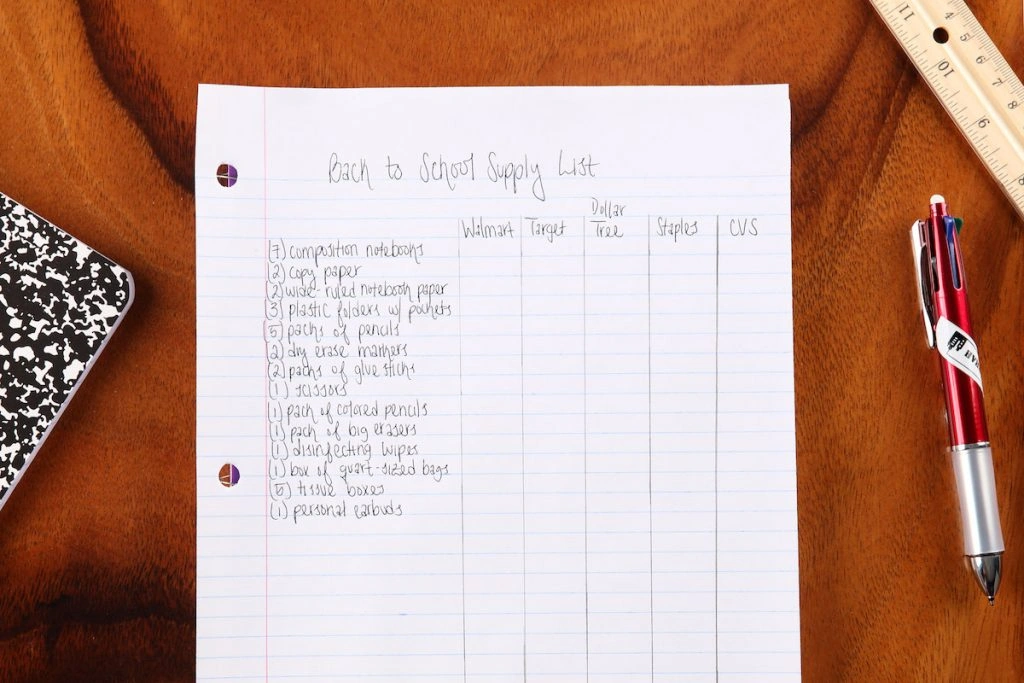 Back to School Supply List
Dollar
Walmart Target Tree Staples CVS
(7) composition notebooks
(2) copy paper
(2) wide-ruled notebook paper
(3) plastic folders w/ pockets
(5) packs of pencils
(2) dry erase markers
(2) packs of glue sticks
(1) scissors
(1) pack of colored pencils
(1) pack of big erasers
(1) disinfecting wipes
(1) box of quart-sized bags
(5) tissue boxes
(1) personal earbuds
11 10 9
4 5 6 7 8